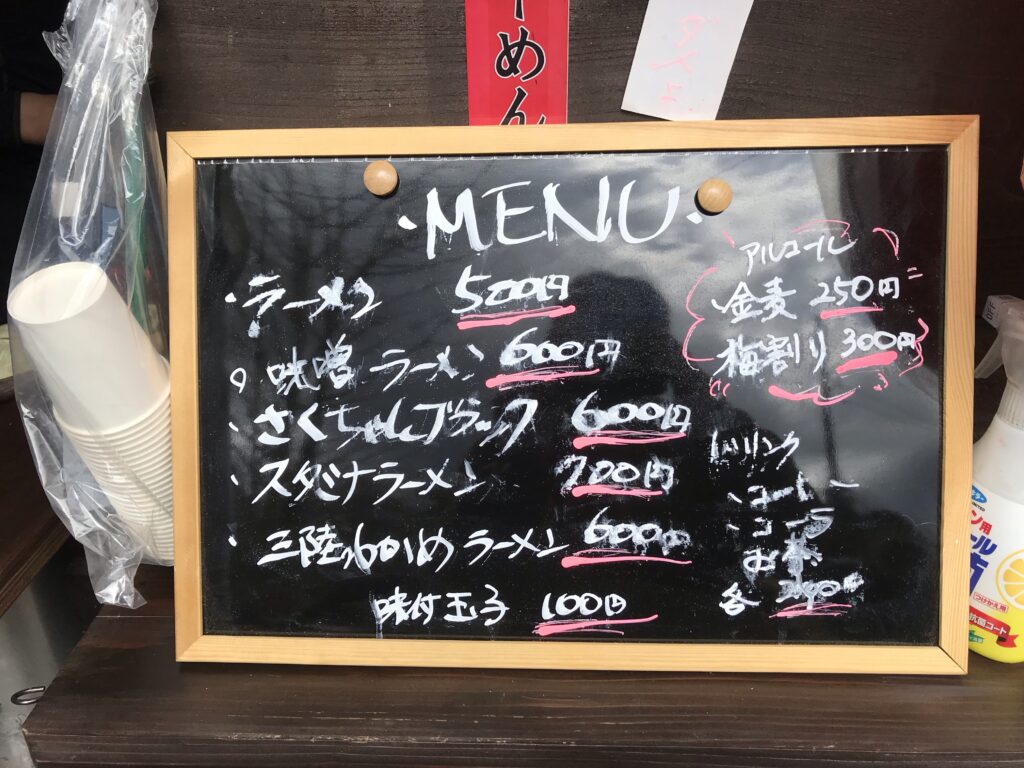 めん
・MENU・
・ラーメン 500円
・味噌ラーメン 600円
・さくちゃんブラック 600円
・スタミナラーメン 700円
・三陸わかめラーメン 600円
味付玉子 100円
アルコール
金麦 250円
梅割り 300円
ドリンク
・コーヒー
・コーラ
お茶
各
つけかえ用
抗菌コート